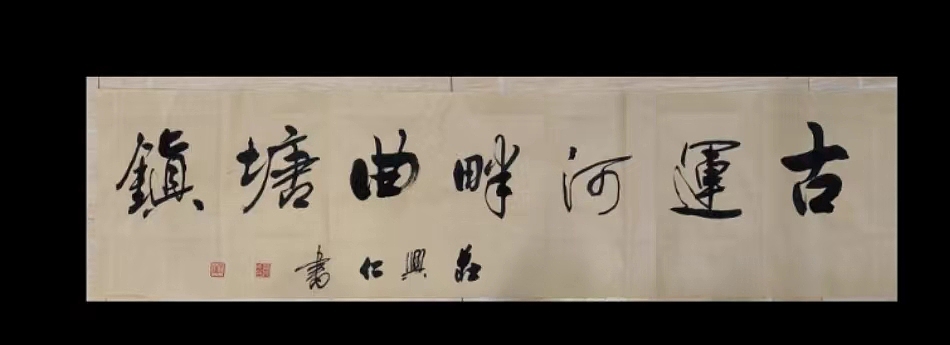 古運河畔曲塘鎮
莊興仁書